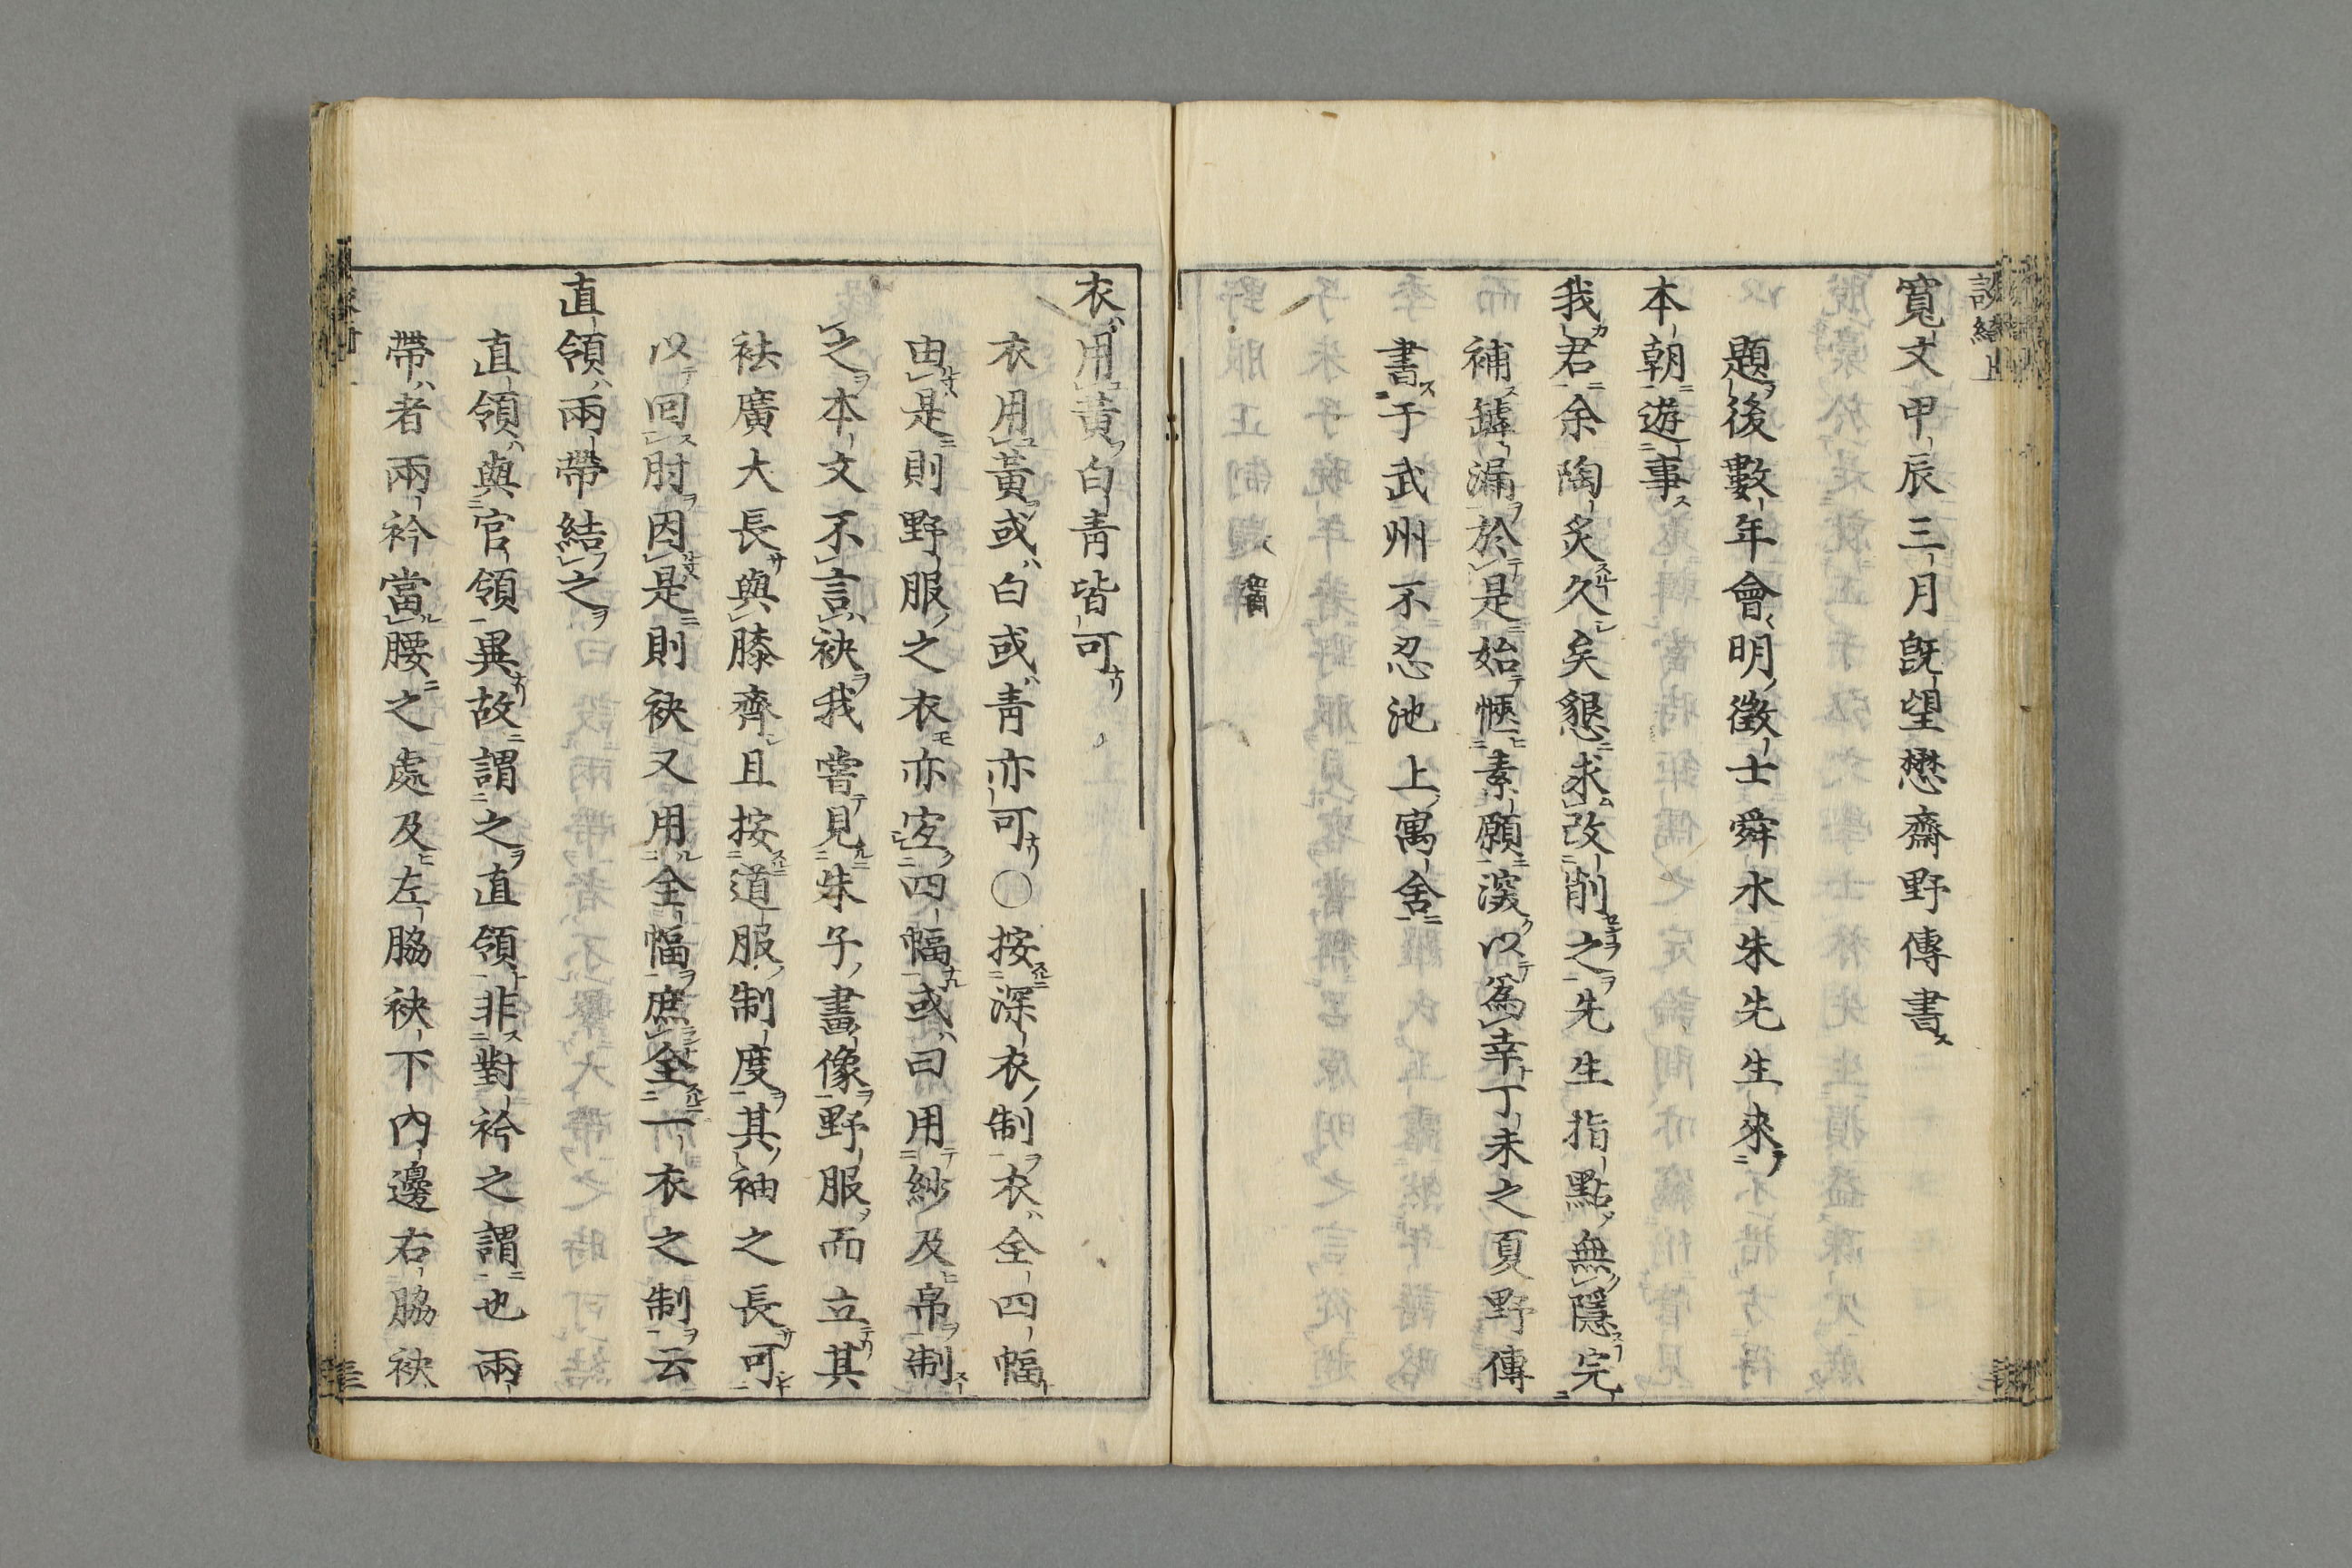 寬文甲辰三月旣望懋齋野傳書
題後數年會明徵士舜水朱先生來
本朝遊事
我君余陶炙久矣懇求改削之先生指點無隱完
補罅漏於是始愜素願深以為幸丁未之夏野傳
書于武州不忍池上寓舍
衣用黃白青皆可
衣用黃或白或青亦可○按深衣制衣全四幅
由是則野服之衣亦宜四幅或曰用紗及帛制
之本文不言袂我嘗見朱子畫像野服而立其
袪廣大長與膝齊且按道服制度其袖之長可
以回肘因是則袂又用全幅庶全一衣之制云
直領兩帶結之
直領與官領異故謂之直領非對衿之謂也兩
帶者兩衿當腰之處及左脇袂下內邊右脇袂